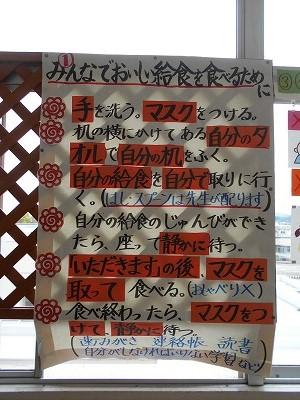 ①
みんなでおいしい給食を食べるために
手を洗う。マスクをつける。
机の横にかけてある自分のタ
オルで自分の机をふく。
自分の給食を自分で取りに行
く。(はし、スプーンは先生が配ります)
自分の給食のじゅんびができ
たら、座って静かに待つ。
「いただきます」の後、マスクを
取って食べる。(おしゃべり×)
食べ終わったら、マスクをつ
けて、静かに待つ。
(歯みがき 連絡帳 読書
自分がしなければいけない学習など)
③